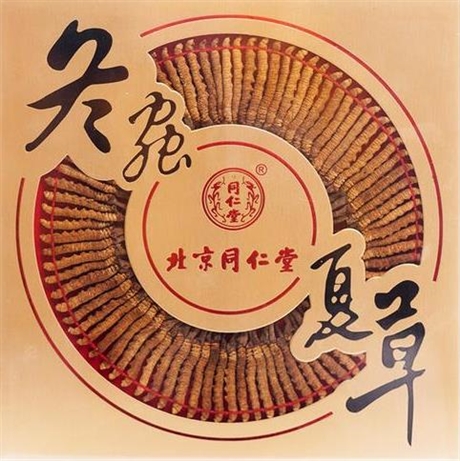 冬蟲
同仁堂
®
北京同仁堂
夏草